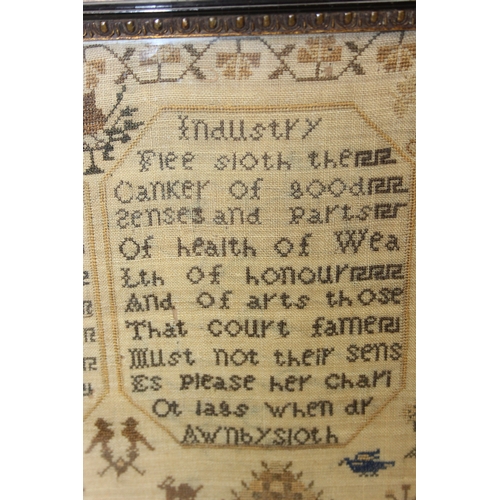 Industry
Flee sloth the
Canker of good
Senses and Parts
Of health of Wea
Lth of honour
And of arts those
That court fame
Must not their sens
Es Please her Chari
Ot lags when dr
Awnbysloth